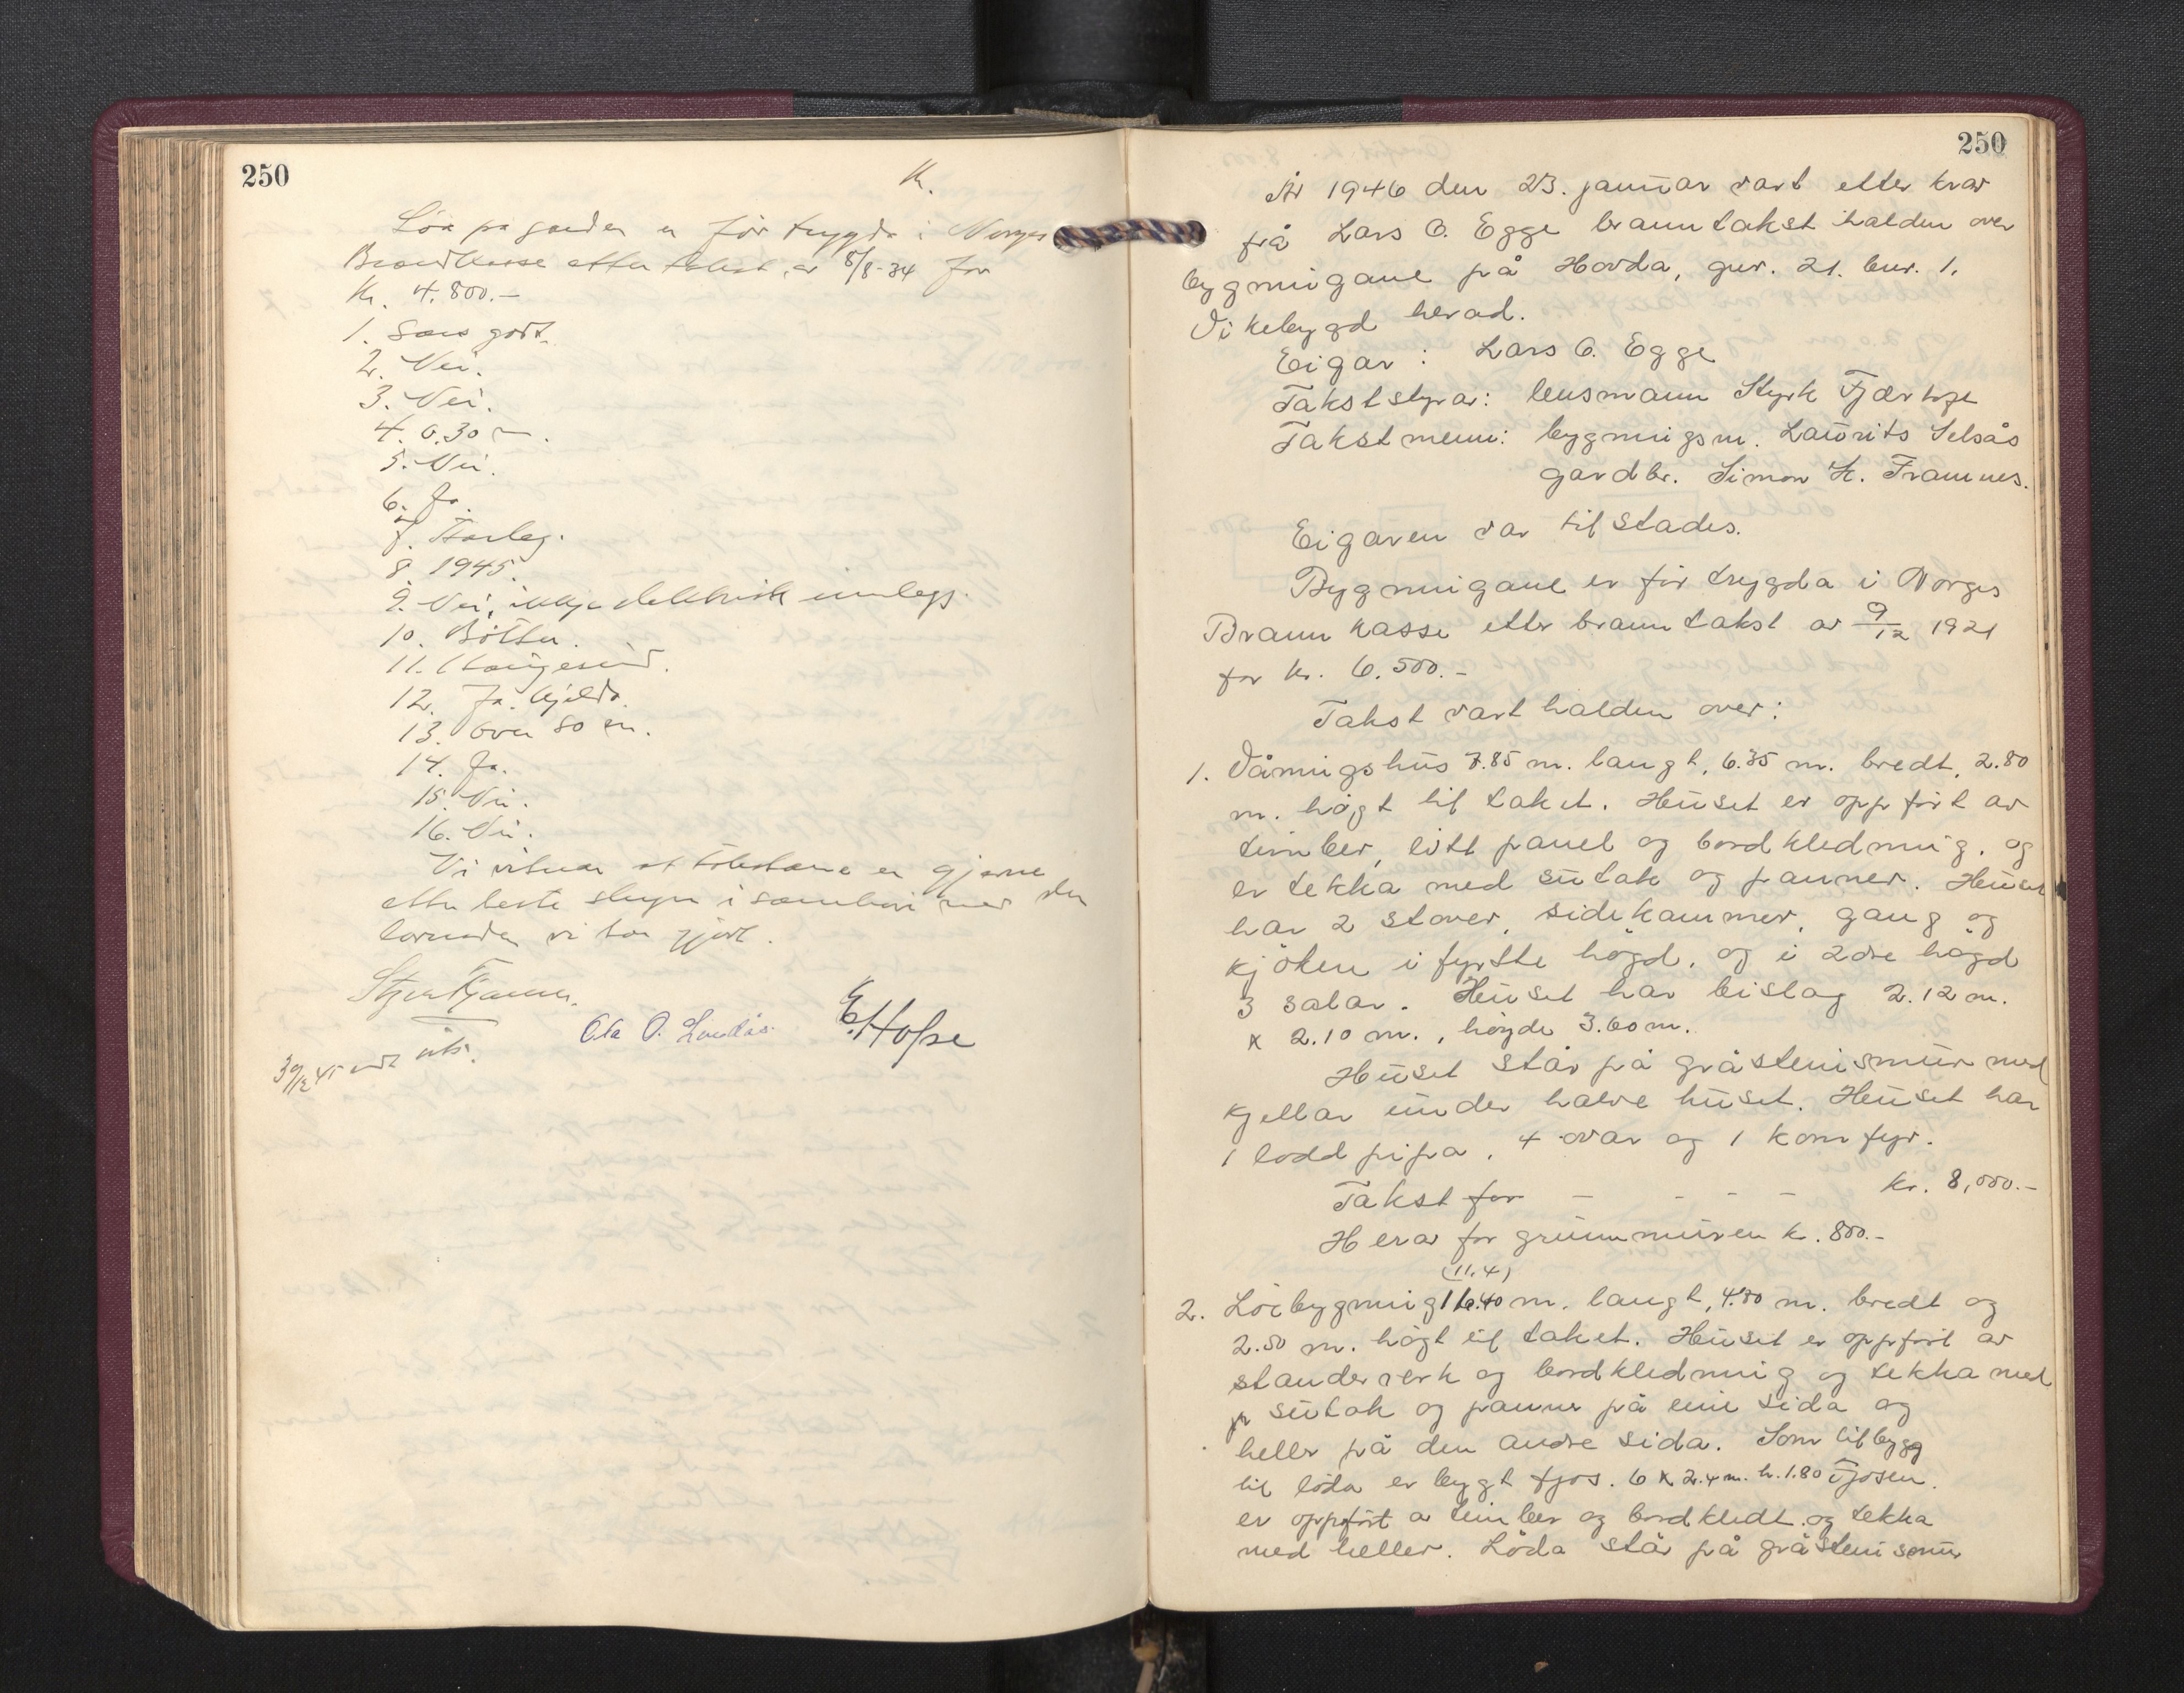 250
K.
Löa på garden er før trygda i Norges
Brandkasse etter takst av 8/8-34 for
Kr. 4.800.-
1. Særs godt.
2. Nei.
3. Nei.
4. 0.30 m.
5. Nei.
6. Ja.
7. Farleg.
8. 1945.
9. Nei, ikkje elektrisk innlegg.
10. Bötter.
11. Haugesund.
12. Ja. kjelda.
13. Over 80 m.
14. Ja.
15. Nei.
16. Nei.
Vi vitnar at takstane er gjorne
etter beste skyn i samhøve med den
lovnaden vi har gjort.
Styrk Fjærtoft
Ola O. Landås.
E. Hofse
30/12 45 utsk.
250
År 1946 den 23. januar vart etter krav
frå Lars O. Egge branntakst halden over
bygningane på Hovda, gnr. 21. bnr. 1.
Vikebygd herad.
Eigar: Lars O. Egge
Takststyrar: lensmann Styrk Fjærtoft
Takstmenn: bygningsm. Laurits Selsås
gardbr. Simon H. Framnes.
Eigaren var tilstades.
Bygningane er før trygda i Norges
Brannkasse etter branntakst av 9/12 1921
for kr. 6.500.-
Takst vart halden over:
1. Våningshus 7.85 m. langt, 6.35 m. bredt, 2.80
m. högt til taket. Huset er oppfört av
timber, litt panel og bordkledning, og
er tekka med sutak og panner. Huset
har 2 stover, sidekammer, gang og
kjöken i fyrste högd, og i 2dre högd
3 salar. Huset har bislag 2.12 m.
x 2.10 m., høyde 3.60 m.
Huset står på gråsteinsmur med
kjellar under halve huset. Huset har
1 lodd pipa, 4 ovar og 1 komfyr.
Takst for - - - - kr. 8,000.-
Herav for grunnmuren k. 800.-
(11.4)
2. Löebygning 16.40 m. langt, 4.80 m. bredt og
2.50 m. högt til taket. Huset er oppfört av
standerverk og bordkledning og tekka med
på sutak og panner på eini sida og
heller på den andre sida. Som tilbygg
til löda er bygt fjos. 6 x 2.4 m. h. 1.80 Fjosen
er oppfört a timber og bordkledt og tekka
med heller. Löda står på gråsteinsmur